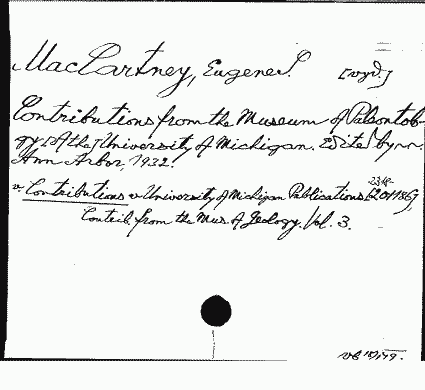 MacCartney, Eugene S. [wyd.]
Contributions from the Museum of Paleontolo-
gy, of the University of Michigan. Edited by ...
Ann Arbor, 1932.
v. Contributions v. University of Michigan Publications [201186],
Contrib. from the Mus. of Geology. Vol. 3.